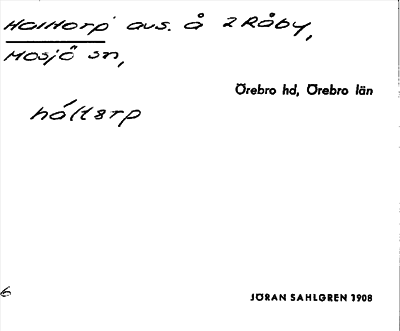 Halltorp avs. å 2 Råby,
Mosjö sn,
Örebro hd, Örebro län
hálltorp
6
JÖRAN SAHLGREN 1908